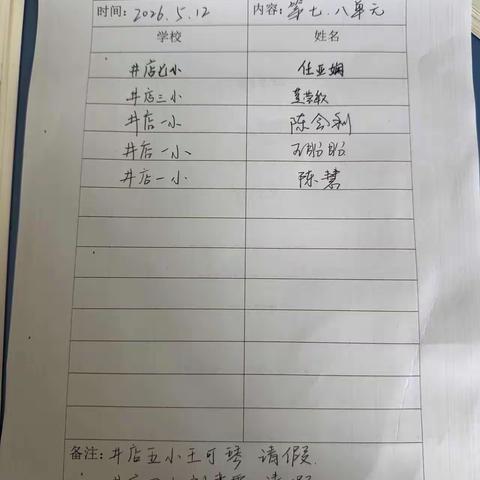 时间：2026.5.12 内容：第七.八单元
学校 姓名
井店七小 任亚娴
井店三小 荣敏
井店一小 陈会利
井店一小 盼盼
井店一小 陈慧
备注：井店五小王可琇 请假.